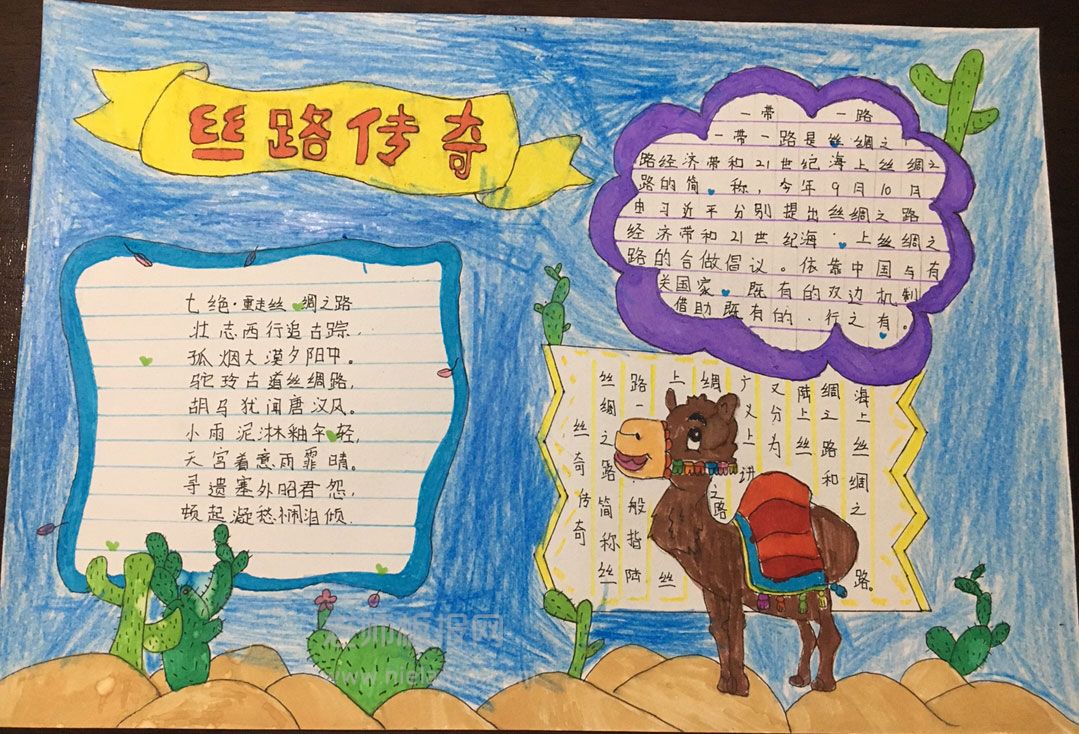 丝路传奇
一带一路
一带一路是丝绸之
路经济带和21世纪海上丝绸之
路的简称，今年9月10月
由习近平分别提出丝绸之路
经济带和21世纪海上丝绸之
路的合做倡议。依靠中国与有
关国家既有的双边机制
借助既有的·行之有。
七绝·丝绸之路
壮志西行追古踪，
孤烟大漠夕阳中。
驼玲古道丝绸路，
胡马犹闻唐汉风。
小雨泥淋釉年轻，
天宫着意雨霏晴。
寻遗塞外昭君怨，
顿起凝愁泪倾.
丝奇传奇
丝绸之路简称丝
路一般指陆
上丝
绸之路
广义上讲
又分为
陆上丝
绸之路和
海上丝绸之路。